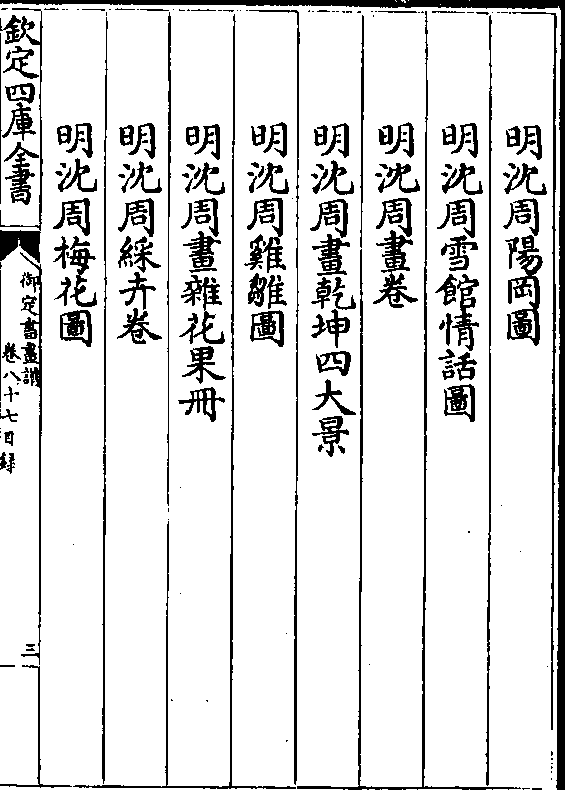 明沈周陽岡圖
明沈周雪館情話圖
明沈周畫卷
明沈周畫乾坤四大景
明沈周雞雛圖
明沈周畫雜花果冊
明沈周綵卉卷
明沈周梅花圖
欽定四庫全書
御定書畫譜
卷八十七目録
三